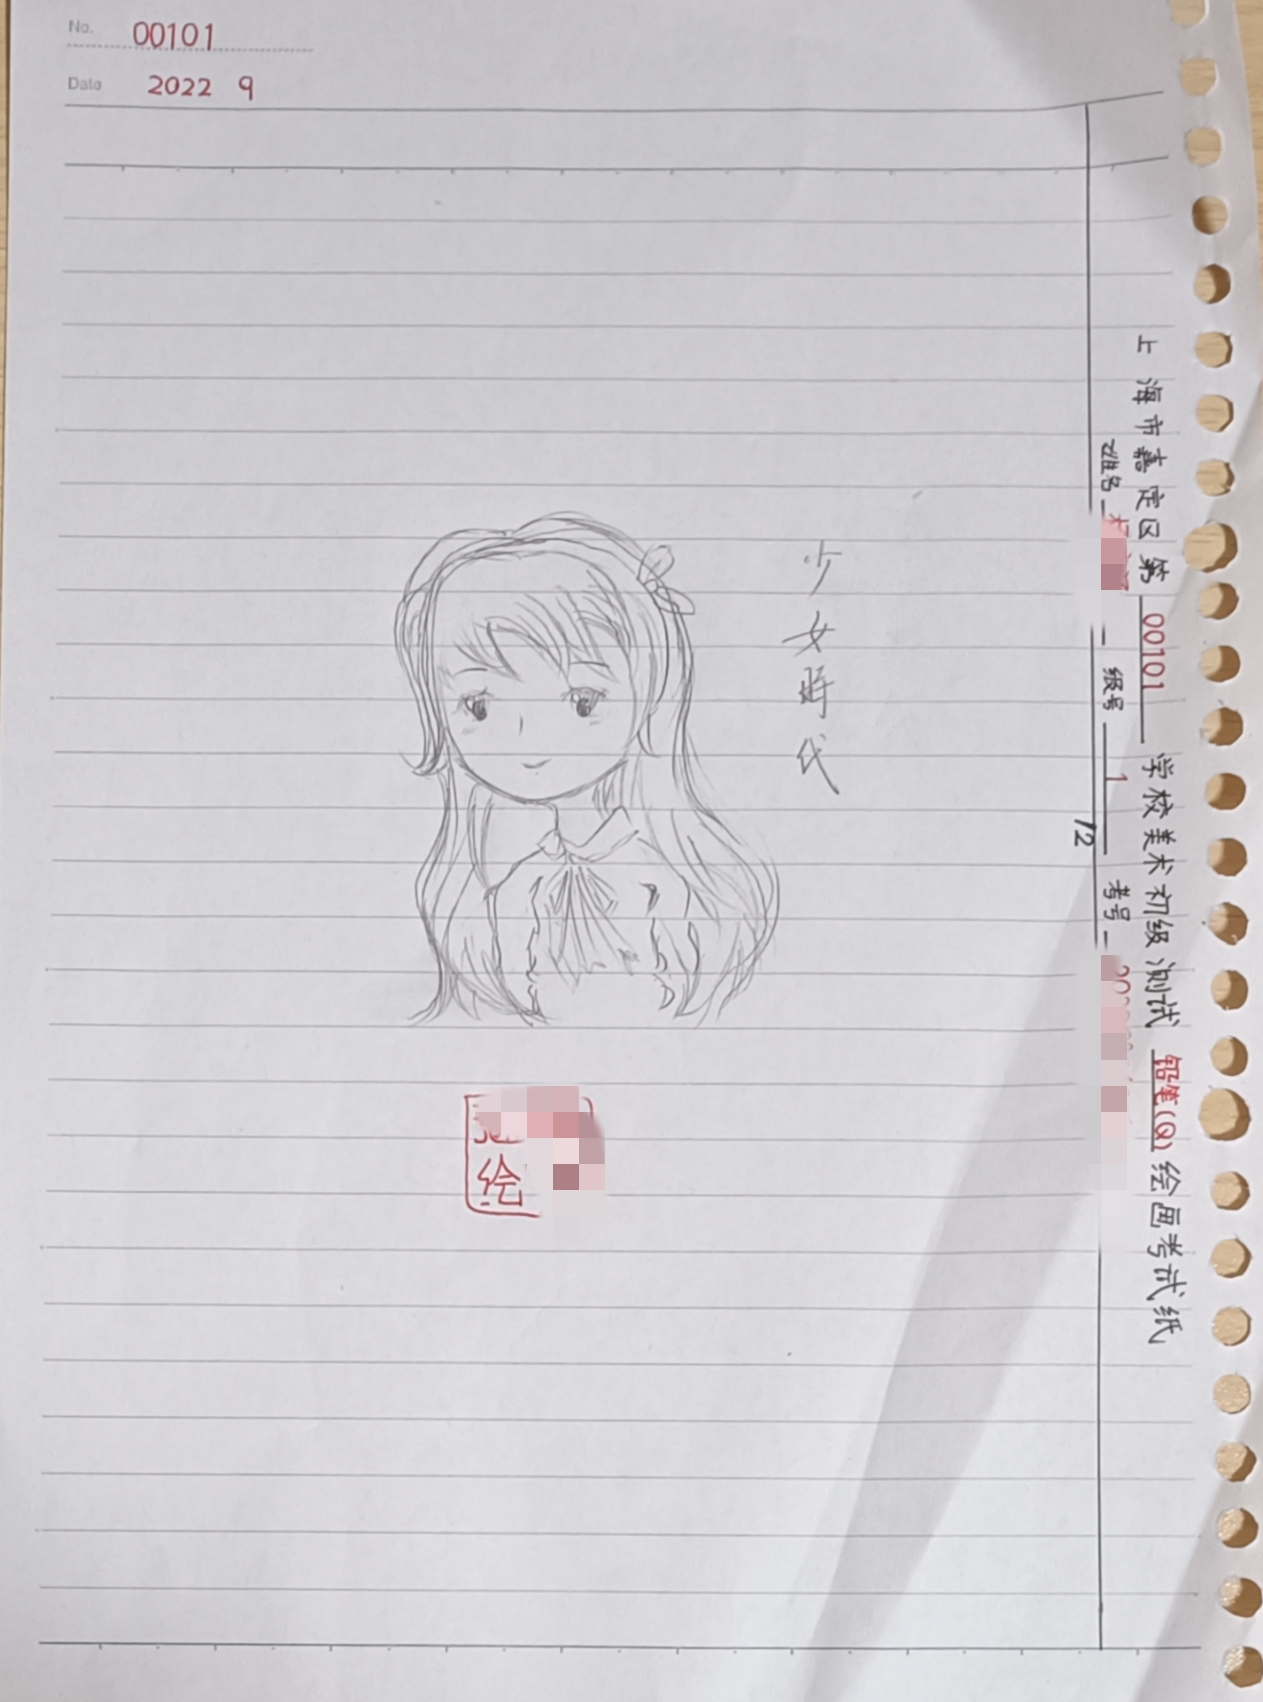 No. 00101
Date 2022 9
上海市嘉定区第 00101 学校美术初级测试 铅笔(Q) 绘画考试纸
姓名
级号 1
考号
12
少女時代
绘